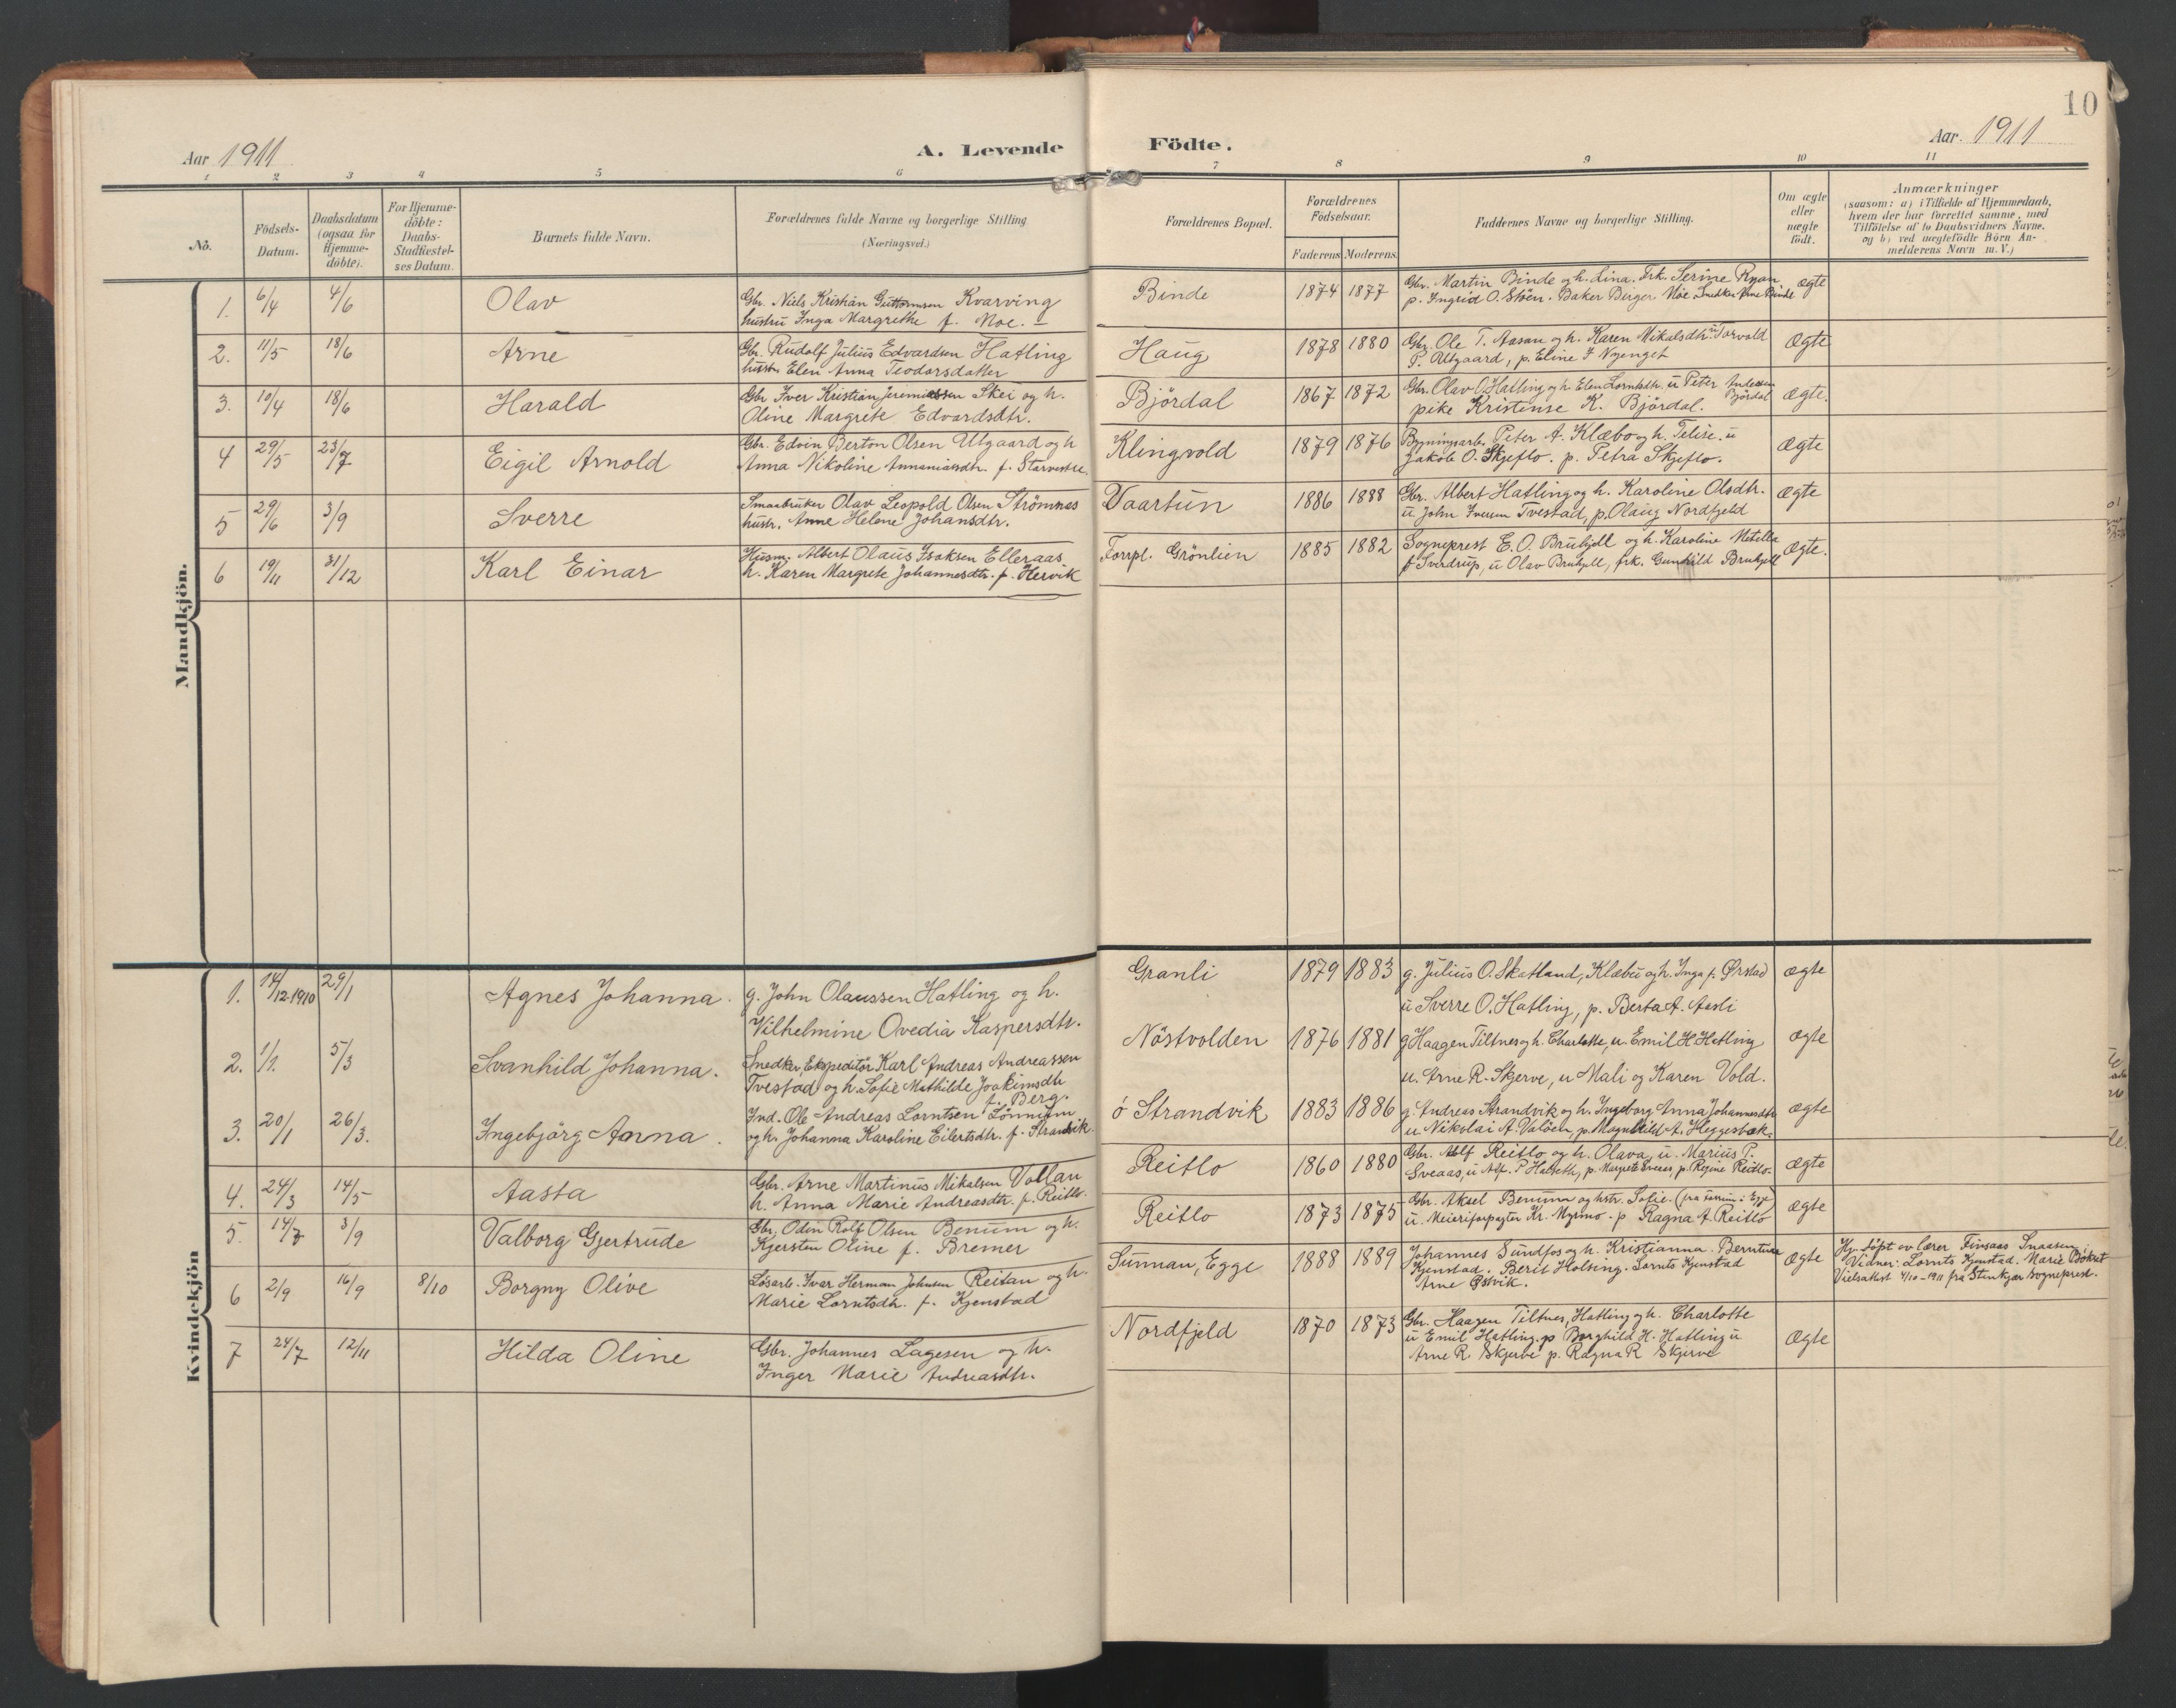 10
Aar 1911
A. Levende Födte.
Aar. 1911
1 2 3 4 5 6 7 8 9 10 11
No.
Födsels-
Datum.
Daabsdatum
(ogsaa for
Hjemme-
döbte).
For Hjemme-
döbte:
Daabs-
Stadfæstel-
ses Datum.
Barnets fulde Navn.
Forældrenes fulde Navne og borgerlige Stilling
(Næringsvei.)
Forældrenes Bopæl.
Forældrenes
Födselsaar.
Faderens Moderens
Faddernes Navne og borgerlige Stilling.
Om ægte
eller
uægte
födt.
Anmærkninger
(saasom: a) i Tilfælde af Hjemmedaab,
hvem der har forrettet samme, med
Tilföielse af to Daabsvidners Navne,
og b) ved uægtefödte Börn An-
melderens Navn m. V.)
Mandkjön.
1. 6/4 4/6 Olav
Gbr. Niels Kristian Guttormsen Kvarving
hustru Inga Margrethe f. Moe.
Binde 1874 1877
Gbr. Martin Binde og h. Lina. Frk. Serine Ryan
p. Ingrid O. Stöen. Baker Birger Moe. Snedker Arne Binde
ægte
2. 11/5 18/6 Arne
Gbr. Rudolf Julius Edvardsen Hatling
hustr. Elen Anna Teodorsdatter
Haug 1878 1880
Gbr. Ole T. Aasan og h. Karen Mikalsdtr. u Torvald
P. Utgaard, p. Eline J Nyenget
Ægte
3. 10/4 18/6 Harald
Gbr Iver Kristian Jeremiassen Skei og h.
Oline Margrete Edvardsdtr.
Björdal 1867 1872
Gbr. Olav O. Hatling og h Elen Lorntsdtr. u Peter Andersen
Björdal
pike Kristense K. Björdal.
Ægte.
4 29/5 23/7 Eigil Arnold
Gbr. Edvin Berton Olsen Utgaard og h
Anna Nikoline Annaniasdtr. f. Starvestre
Klingvold 1879 1876
Bygningsarb. Peter A. Klæbo og h. Telise. u
Jakob O. Skjeflo. p. Petra Skjeflo.
Ægte
5 29/6 3/9 Sverre
Smaabruker Olav Leopold Olsen Strömnes
hustr. Anne Helene Johansdtr.
Vaartun 1886 1888
Gbr. Albert Hatling og h. Karoline Olsdtr.
u John Iversen Tvestad, p. Olaug Nordfjeld
Ægte
6 19/11 31/12 Karl Einar
Husm. Albert Olaus Isaksen Elleraas
h. Karen Margrete Johannesdtr. f. Hervik
Forpl. Grönlien 1885 1882
Sogneprest E. O. Bruhjell og h. Karoline Metella
f Sverdrup, u Olav Bruhjell, frk. Gunhild Bruhjell
Ægte.
Kvindekjön
1. 14/12 1910 29/1 Agnes Johanna.
g. John Olaussen Hatling og h.
Vilhelmine Ovedia Kaspersdtr.
Granli 1879 1883
g. Julius O. Skatland, Klæbu og h. Inga f. Ørstad
u Sverre O. Hatling, p. Berta A. Aasli
ægte
2. 1/1. 5/3 Svanhild Johanna.
Snedker, Ekspeditör Karl Andreas Andreassen
Tvestad og h. Sofie Mathilde Joakimsdtr
f. Berg.
Nöstvolden 1876 1881
g Haagen Tiltnes og h. Charlotte, u. Emil H Hatling
u. Arne R. Skjerve, u Mali og Karen Vold.
ægte
3. 20/1 26/3. Ingebjörg Anna.
Ind. Ole Andreas Lorntsen Lönnum
og h. Johanna Karoline Eilertsdtr. f. Strandvik
ó Strandvik 1883 1886
g. Andreas Strandvik og h. Ingeborg Anna Johannesdtr
u. Nikolai A. Valöen, p. Magnhild A. Heggesbæk.
ægte
4. 24/3 14/5 Aasta
Gbr. Arne Martinus Mikalsen Vollan
h. Anna Marie Andreasdtr. f. Reitlo.
Reitlo 1860 1880
Gbr. Adolf Reitlo og h. Olava, u. Marius P.
Sveaas, u Alf. P Halseth, p. Margrete Sveaas, p. Regine Reitlo.
Ægte
5. 14/7 3/9 Valborg Gjertrude
Gbr. Odin Rolf Olsen Benum og h.
Kjersten Oline f. Bremer
Reitlo 1873 1875
Gbr. Aksel Benum og hstr. Sofie.
u. Meieriforpagter Kr. Myrmo. p Ragna A. Reitlo
Ægte
6 2/9 16/9 8/10 Borgny Olive
Lösarb. Ivar Herman Johnsen Reitan og h.
Marie Lorntsdtr. f. Kjenstad
Sunnan, Egge 1888 1889
Johannes Sundfos og h. Kristianna. Berntine
Kjenstad. Berit Holsing. Lornts Kjenstad
Arne Østvik.
Ægte
Hj. döpt av lærer Finsaas Snaasen.
Vidner: Lornts Kjenstad. Marie
Vielsattest 4/10-1911 fra Stenkjær Sogneprest.
7 24/7 12/11 Hilda Oline
Gbr. Johannes Lagesen og h.
Inger Marie Andreasdtr.
Nordfjeld 1870 1873
Gbr. Haagen Tiltnes, Hatling og h. Charlotte
u Emil Hatling. p Borghild H. Hatling u
Arne R. Skjerve p. Ragna R Skjerve
Ægte